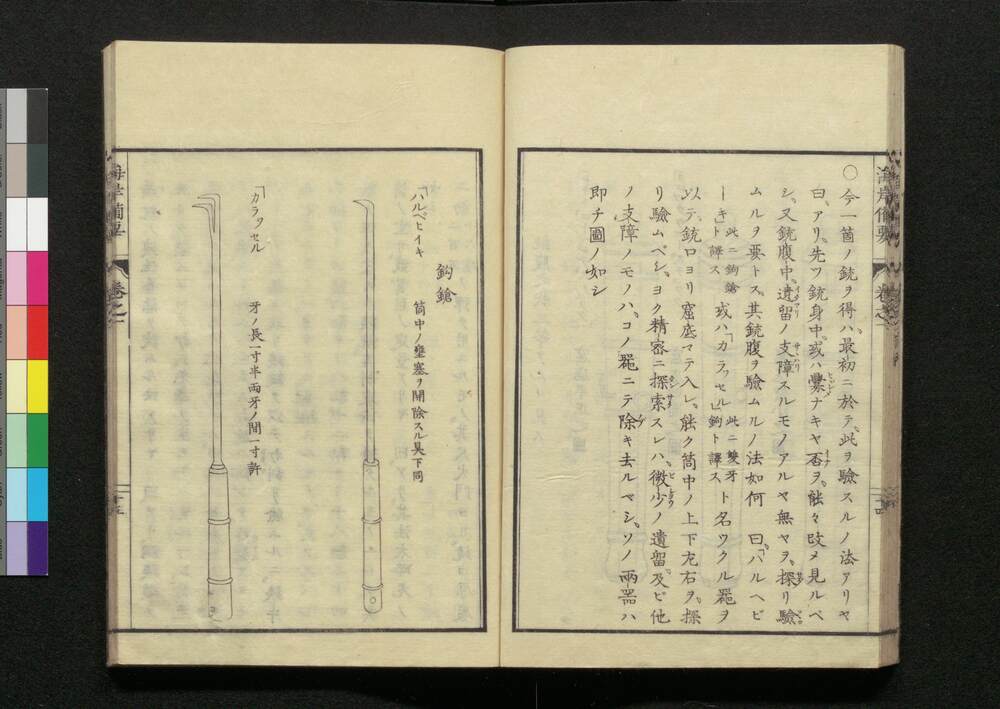 〇今一箇ノ銃ヲ得ハ、最初ニ於テ、此ヲ驗スルノ法アリヤ
曰、アリ、先ツ銃身中、或ハ釁ナキヤ否ヲ、能々改メ見ルベ
シ、又銃腹中、遺留ノ支障スルモノアルヤ無ヤヲ、探リ驗
ムルヲ要トス、其銃腹ヲ驗ムルノ法如何 曰、「ハルヘビ
ーキ」此ニ鉤鎗ト譯ス 或ハ「カラッセル」此ニ雙牙鉤ト譯ス ト名ツクル器ヲ
以テ、銃口ヨリ窟底マテ入レ、能ク筒中ノ上下左右ヲ、探
リ驗ムベシ、ヨク精密ニ探索スレハ、微少ノ遺留、及ビ他
ノ支障ノモノハ、コノ器ニテ除キ去ルベシ、ソノ兩器ハ
即チ圖ノ如シ
海岸備要
卷之一
鈎鎗
「ハルベヒイキ
筒中ノ壅塞ヲ開除スル具下同
「カラッセル
牙ノ長一寸半両牙ノ間一寸許